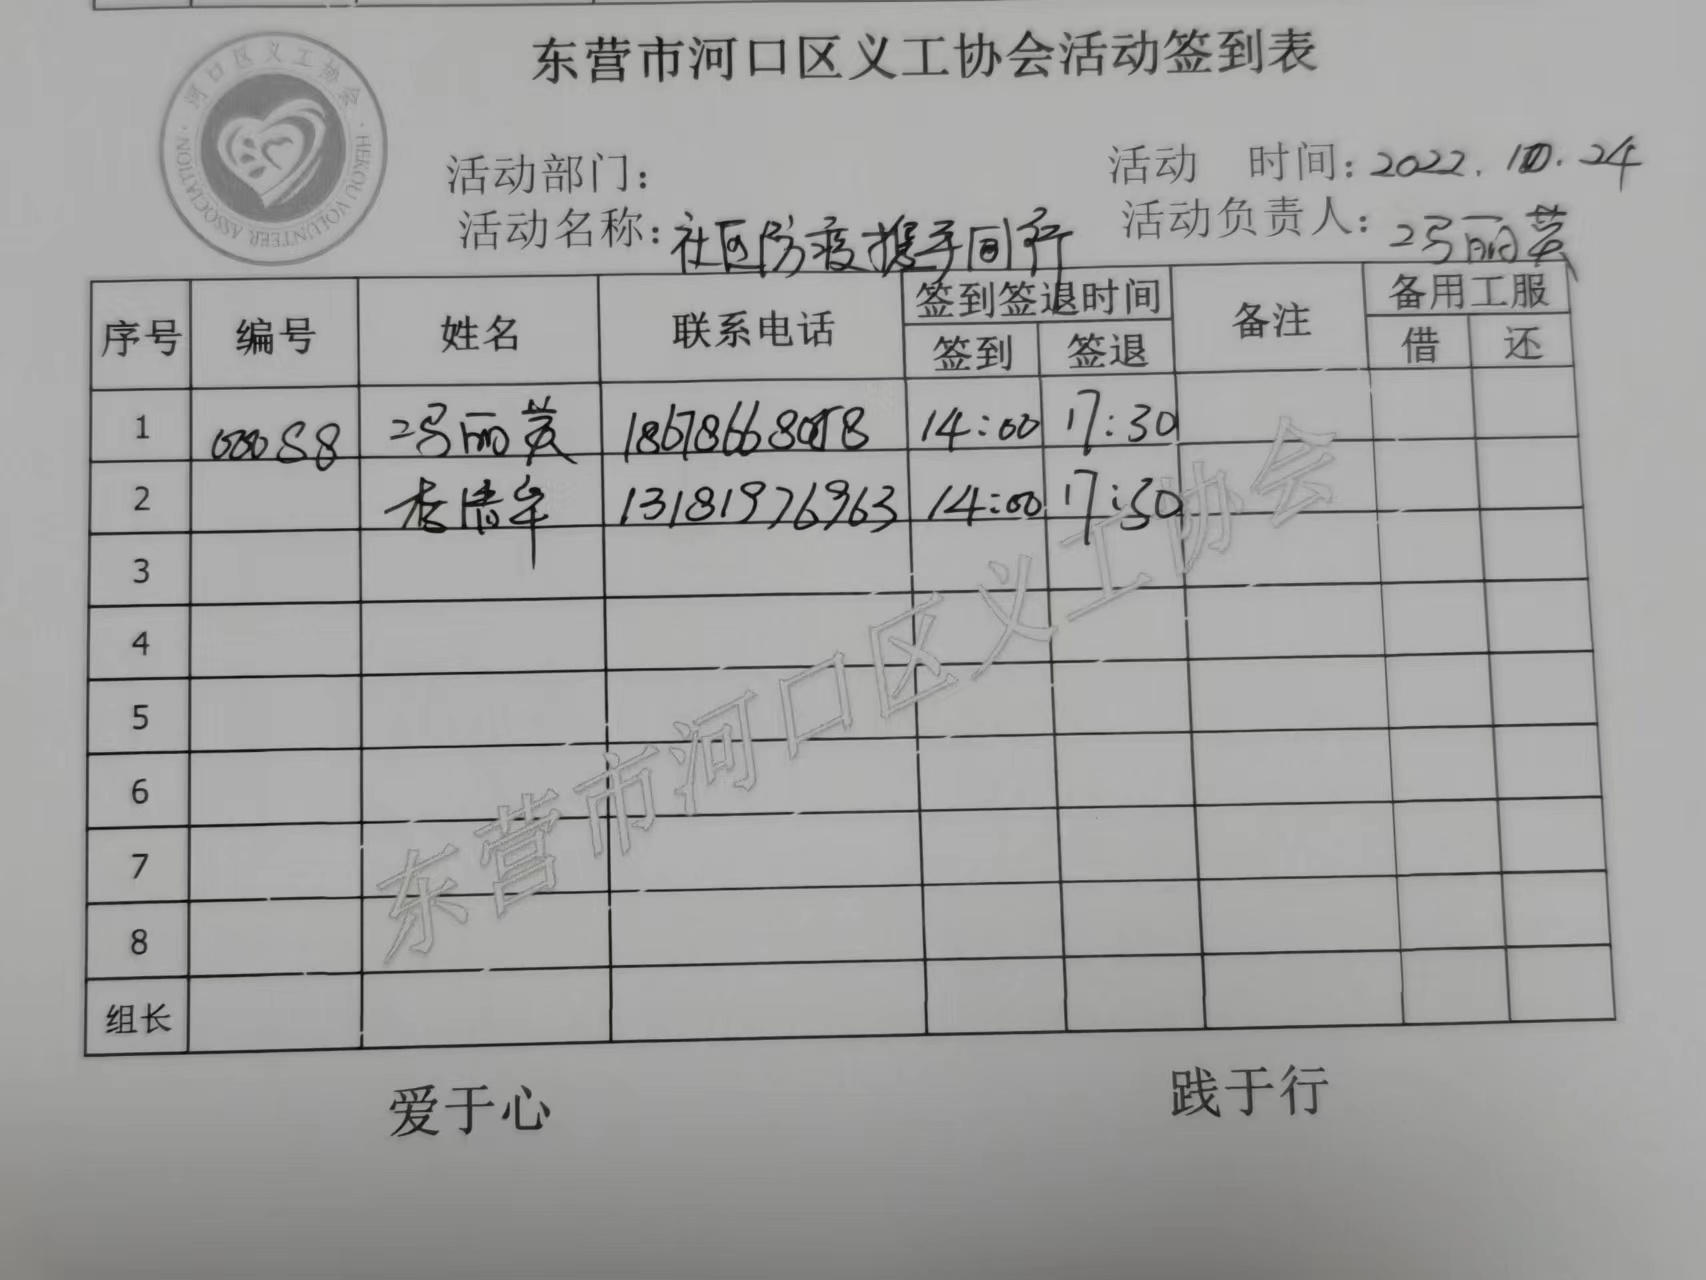 东营市河口区义工协会活动签到表
河口区义工协会
HEKOU VOLUNTEER ASSOCIATION
活动部门：
活动 时间：2022.10.24
活动名称：社区防疫携手同行
活动负责人：冯丽英
序号 编号 姓名 联系电话 签到签退时间 备注 备用工服
签到 签退 借 还
1 00058 冯丽英 18678668058 14:00 17:30
2 李清年 13181976963 14:00 17:30
3
4
5
6
7
8
组长
东营市河口区义工协会
爱于心 践于行